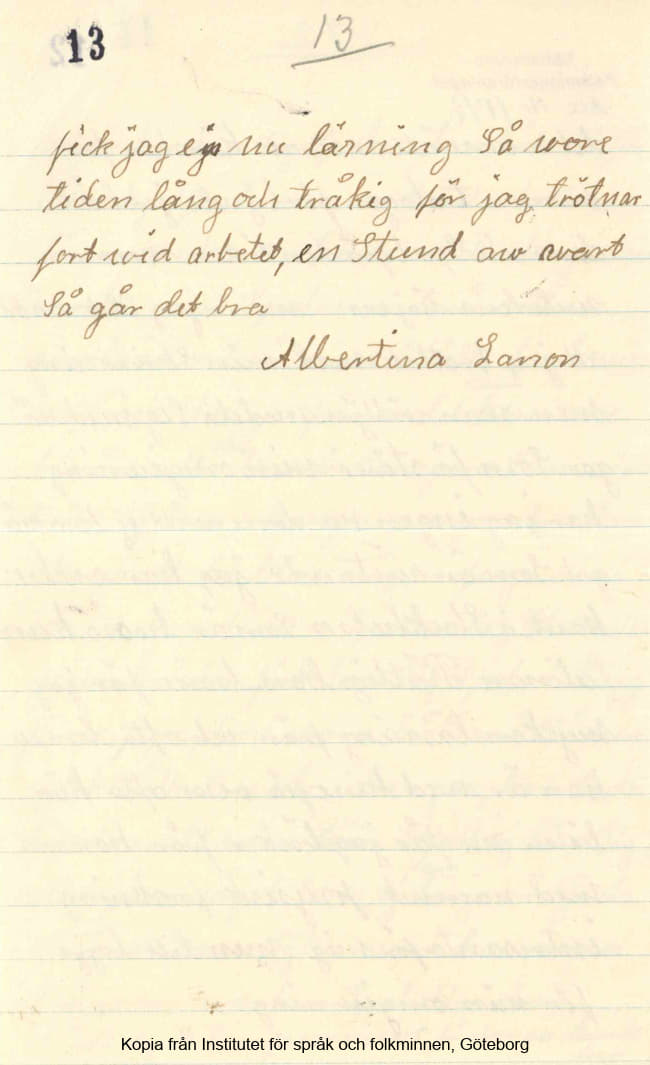 13
13
fick jag ej nu läsning Så wore
tiden lång och tråkig för jag tröttnar
fort wid arbetet, en Stund aw wart
Så går det bra
Albertina Larson
Kopia från Institutet för språk och folkminnen, Göteborg